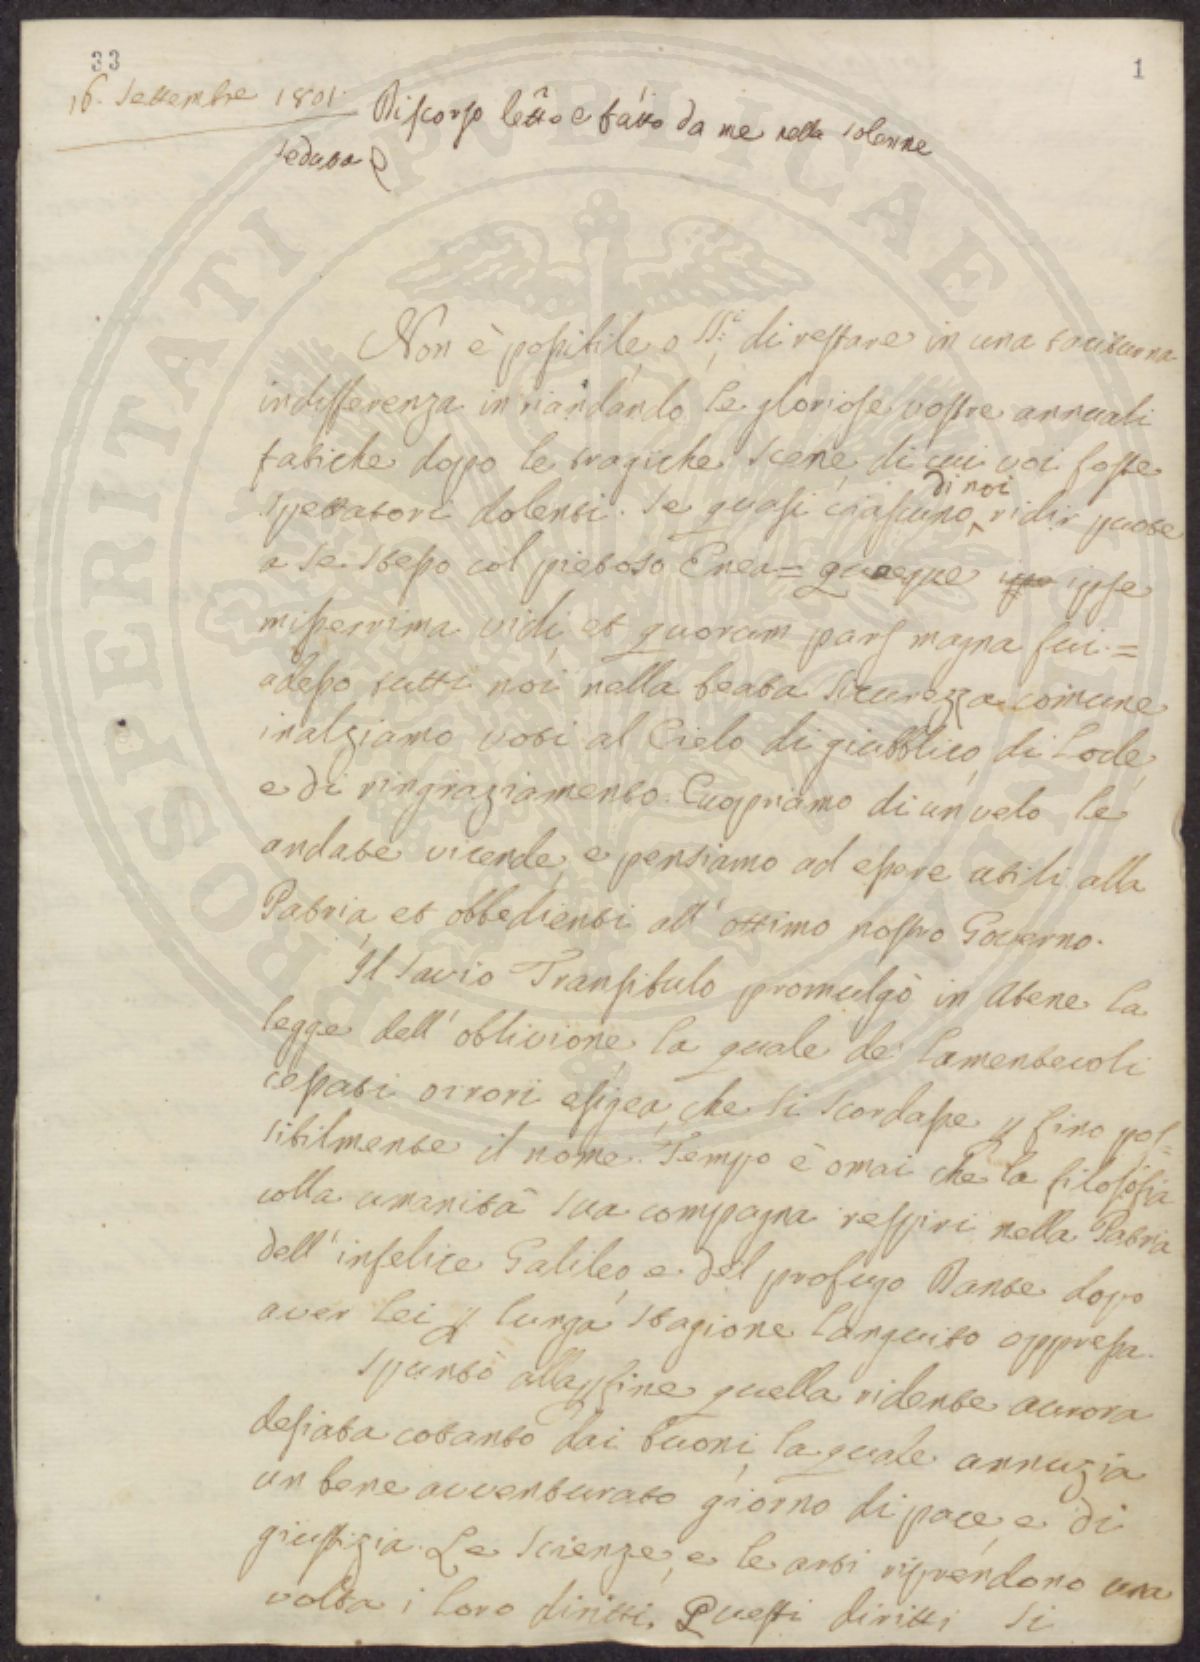 33
1
16. Settembre 1801.
Discorso letto e fatto da me nella solenne
seduta
Non è possibile, o SS.i di restare in una taciturna
indifferenza in riandando le gloriose vostre annuali
fatiche dopo le tragiche scene, di cui voi foste
spettatori dolenti. Se quasi ciascuno di noi ridir puote
a se stesso col pietoso Enea = quaeque ipse ipse
miserrima vidi, et quorum pars magna fui. =
adesso tutti noi nella beata sicurezza comune
inalziamo voti al Cielo di giubbilo, di Lode,
e di ringraziamento. Cuopriamo di un velo le
andate vicende, e pensiamo ad essere utili alla
Patria, et obbedienti all' ottimo nostro Governo.
Il savio Transibulo promulgò in Atene la
legge dell' oblivione, la quale de' lamentevoli
cessati orrori esigea, che si scordasse fino pos=
sibilmente il nome. Tempo è omai che la filosofia
colla umanità sua compagna respiri nella Patria
dell' infelice Galileo, e del profugo Dante dopo
aver lei lunga stagione languito oppressa.
Spuntò alla fine quella ridente aurora
desiata cotanto dai buoni, la quale annuzia
un bene avventurato giorno di pace, e di
giustizia. Le scienze, e le arti riprendono una
volta i loro diritti. Questi diritti si